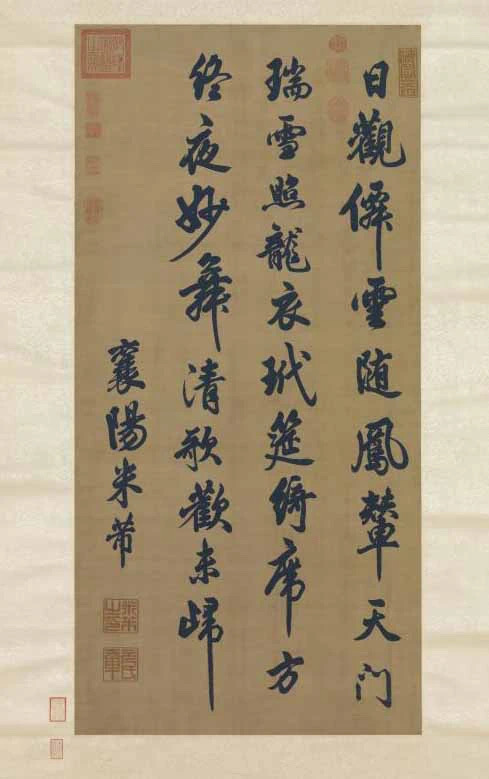 日觀僊雲随鳳輦天门
瑞雪照龍衣玳筵綺席方
终夜妙舞清歌歡未歸
襄陽米芾